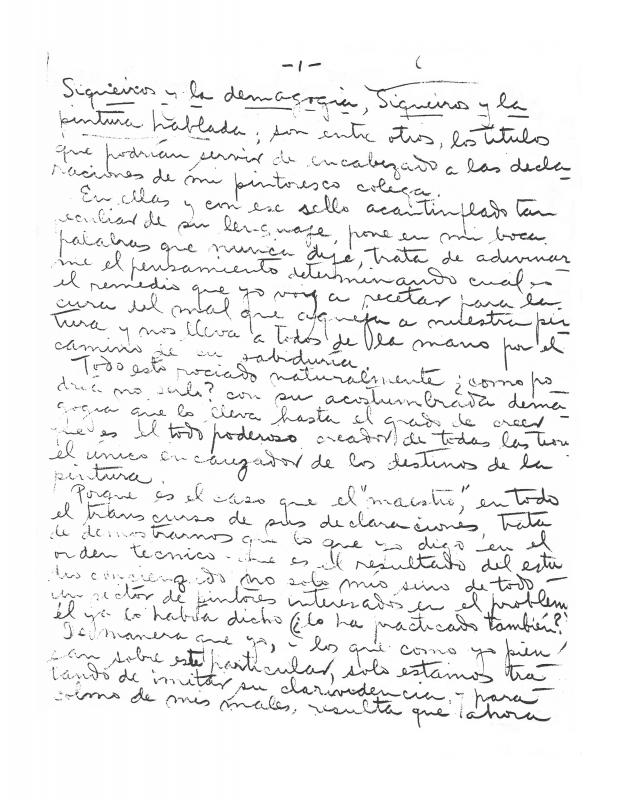 -1-
Siqueiros y la demagogia, Siqueiros y la
pintura hablada; son entre otros, los títulos
que podrían servir de encabezado a las decla-
raciones de mi pintoresco colega.
En ellas y con ese sello acantinflado tan
peculiar de su lenguaje, pone en mi boca
palabras que nunca dije, trata de adivinar-
me el pensamiento determinando cual es
el remedio que yo voy a recetar para la
cura del mal que aqueja a nuestra pin-
tura y nos lleva a todos de la mano por el
camino de su sabiduría.
Todo esto rociado naturalmente ¿como po-
dría no serlo? con su acostumbrada dema-
gogia que lo lleva hasta el grado de creer
que es el todo poderoso creador de todas las teori
el unico encauzador de los destinos de la
pintura.
Porque es el caso que el "maestro", en todo
el transcurso de sus declaraciones, trata
de demostrarnos que lo que yo digo en el
orden tecnico que es el resultado del estu-
dio concienzudo no solo mío sino de todo
un sector de pintores interesados en el problem
él ya lo había dicho (¿lo ha practicado también?
De manera que yo, y los que como yo pien-
san sobre este particular, solo estamos tra-
tando de imitar su clarividencia y para
colmo de mis males, resulta que ahora